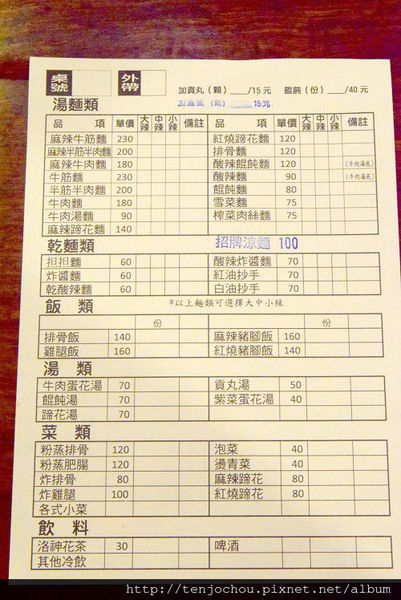 桌號 外帶 加貢丸（顆）____/15元 餛飩（份）____/40元
湯麵類 加滷蛋（顆） 15元
品項 單價 大辣 中辣 小辣 備註 品項 單價 大辣 中辣 小辣 備註
麻辣牛筋麵 230 紅燒蹄花麵 120
麻辣半筋半肉麵 200 排骨麵 120
麻辣牛肉麵 180 酸辣餛飩麵 120 (牛肉湯底)
牛筋麵 230 酸辣麵 90 (牛肉湯底)
半筋半肉麵 200 餛飩麵 80
牛肉麵 180 雪菜麵 75
牛肉湯麵 90 榨菜肉絲麵 75
麻辣蹄花麵 140
乾麵類 招牌涼麵 100
担担麵 60 酸辣炸醬麵 70
炸醬麵 60 紅油抄手 70
乾酸辣麵 60 白油抄手 70
飯類 *以上麵類可選擇大中小辣
份 份
排骨飯 140 麻辣豬腳飯 160
雞腿飯 160 紅燒豬腳飯 140
湯類
牛肉蛋花湯 70 貢丸湯 50
餛飩湯 70 紫菜蛋花湯 40
蹄花湯 70
菜類
粉蒸排骨 120 泡菜 40
粉蒸肥腸 120 燙青菜 40
炸排骨 80 麻辣蹄花 80
炸雞腿 100 紅燒蹄花 80
各式小菜
飲料
洛神花茶 30 啤酒
其他冷飲
http://tenjochou.pixnet.net/album